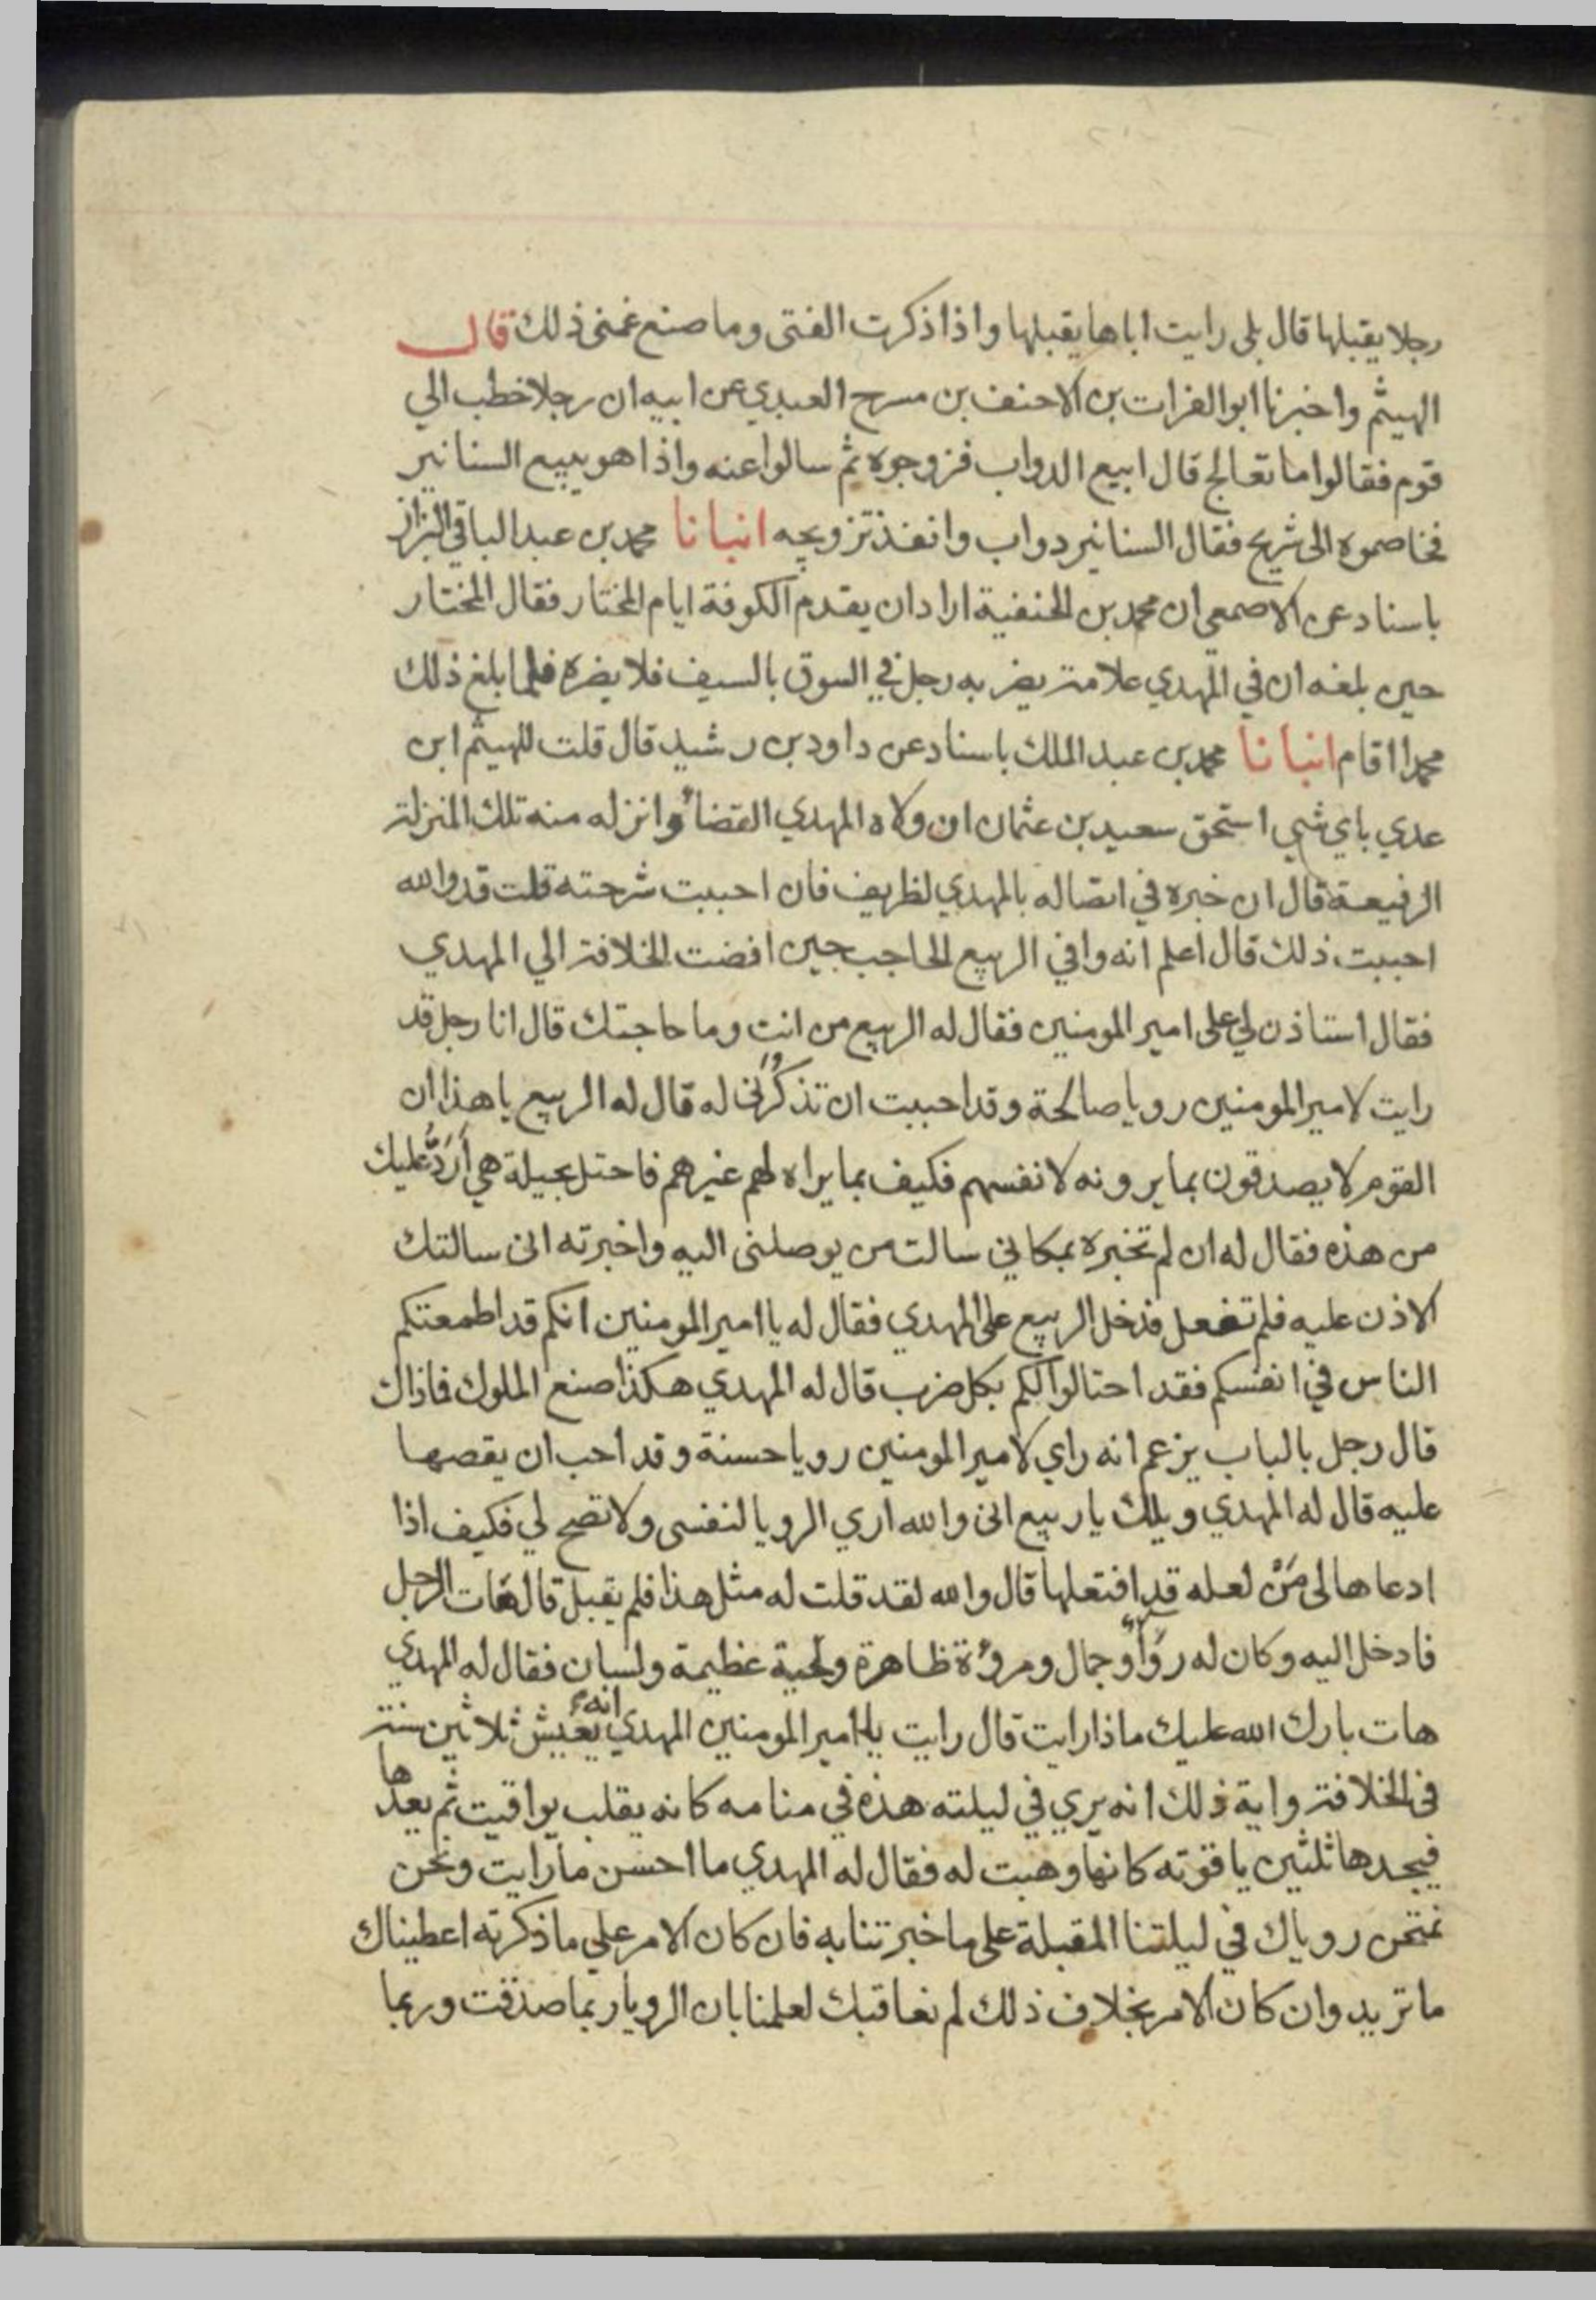 رجلا يقبلها قال بلى رايت اباها يقبلها واذا ذكرت الفتى وما صنع غمني ذلك قال
الهيثم واخبرنا ابو الفرات بن الاحنف بن مسرح العبدي عن ابيه ان رجلا خطب الي
قوم فقالوا ما تعالج قال ابيع الدواب فزوجوه ثم سالوا عنه واذا هو يبيع السنانير
فخاصموه الى شريح فقال السنانير دواب وانفذ تزويجه انبانا محمد بن عبد الباقي البزاز
باسناد عن الاصمعي ان محمد بن الحنفية اراد ان يقدم الكوفة ايام المختار فقال المختار
حين بلغه ان في المهدي علامة يضربه رجل في السوق بالسيف فلا يضره فلما بلغ ذلك
محمدا اقام انبانا محمد بن عبد الملك باسناد عن داود بن رشيد قال قلت للهيثم ابن
عدي باي شي استحق سعيد بن عثمان ان ولاه المهدي القضاء وانزله منه تلك المنزلة
الرفيعة قال ان خبره في اتصاله بالمهدي لظريف فان احببت شرحته قلت قد والله
احببت ذلك قال اعلم انه وافي الربيع الحاجب حين افضت الخلافة الي المهدي
فقال استاذن لي على امير المومنين فقال له الربيع من انت وما حاجتك قال انا رجل قد
رايت لامير المومنين رويا صالحة وقد احببت ان تذكروني له قال له الربيع يا هذا ان
القوم لا يصدقون بما يرونه لانفسهم فكيف بما يراه لهم غيرهم فاحتل بحيلة هي أَرَدُّ عليك
من هذه فقال له ان لم تخبره بمكاني سالت من يوصلني اليه واخبرته اني سالتك
الاذن عليه فلم تفعل فدخل الربيع على المهدي فقال له يا امير المومنين انكم قد اطمعتكم
الناس في انفسكم فقد احتالوا لكم بكل ضرب قال له المهدي هكذا صنع الملوك فماذاك
قال رجل بالباب يزعم انه راي لامير المومنين رويا حسنة وقد احب ان يقصها
عليه قال له المهدي ويلك يا ربيع اني والله اري الرويا لنفسي ولا تصح لي فكيف اذا
ادعاها لى مَنْ لعله قد افتعلها قال والله لقد قلت له مثل هذا فلم يقبل قال فهات الرجل
فادخل اليه وكان له رَوَاءٌ وجمال ومروءة ظاهرة ولحية عظيمة ولسان فقال له المهدي
هات بارك الله عليك ماذا رايت قال رايت يا امير المومنين المهدي انه يعيش ثلاثين سنة
في الخلافة واية ذلك انه يري في ليلته هذه في منامه كانه يقلب يواقيت ثم يعدها
فيجدها ثلثين ياقوته كانها وهبت له فقال له المهدي ما احسن ما رايت ونحن
نمتحن روياك في ليلتنا المقبلة على ما خبرتنا به فان كان الامر علي ما ذكرته اعطيناك
ما تريد وان كان الامر بخلاف ذلك لم نعاقبك لعلمنا بان الرويا ربما صدقت وربما